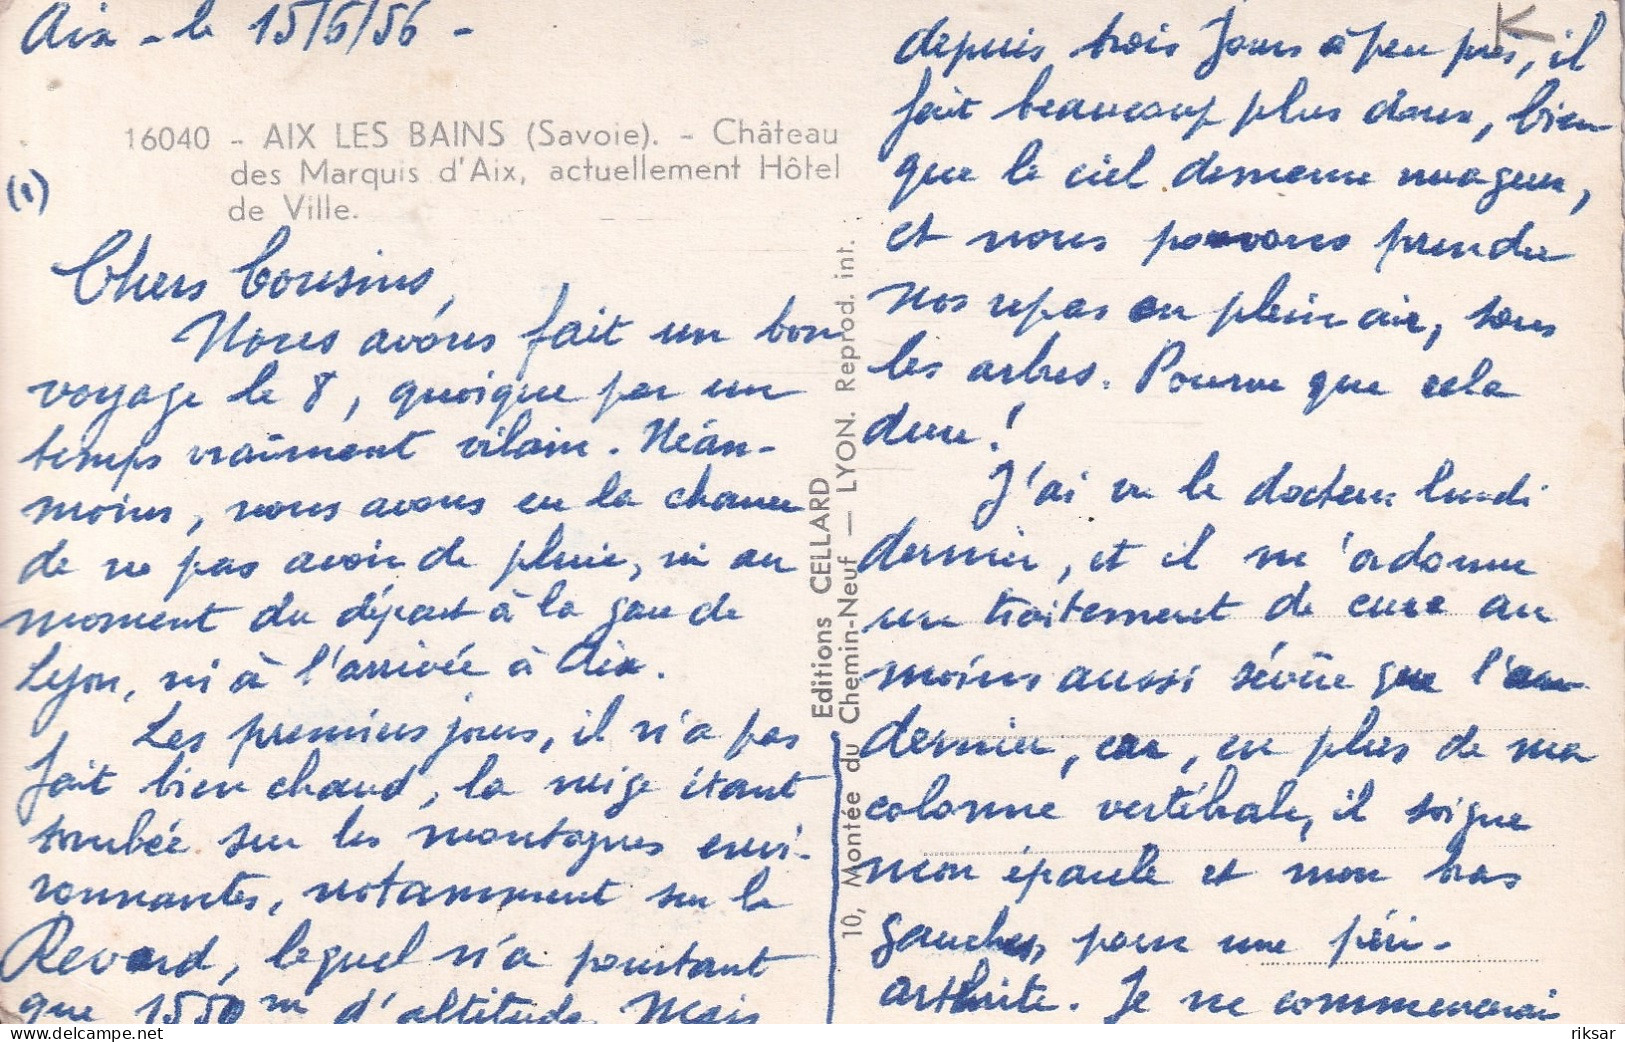 Aix - le 15/6/56 -
16040 - AIX LES BAINS (Savoie). - Château
des Marquis d'Aix, actuellement Hôtel
de Ville.
(1)
Chers Cousins,
Nous avons fait un bon
voyage le 8, quoique par un
temps vraiment vilain. Néan-
moins, nous avons eu la chance
de ne pas avoir de pluie, ni au
moment du départ à la gare de
Lyon, ni à l'arrivée à Aix.
Les premiers jours, il n'a pas
fait bien chaud, la neige étant
tombée sur les montagnes envi-
ronnantes, notamment sur le
Revard, lequel n'a pourtant
que 1550 m d'altitude. Mais
Editions CELLARD
10, Montée du Chemin-Neuf — LYON. Reprod. int.
K
depuis trois jours à peu près, il
fait beaucoup plus doux, bien
que le ciel demeure nuageux,
et nous pouvons prendre
nos repas en plein air, sous
les arbres. Pourvu que cela
dure!
J'ai vu le docteur lundi
dernier, et il m'ordonne
un traitement de cure au
moins aussi sévère que l'an
dernier, car, en plus de ma
colonne vertébrale, il soigne
mon épaule et mon bras
gauches, pour une péri-
arthrite. Je ne commencerai
riksar